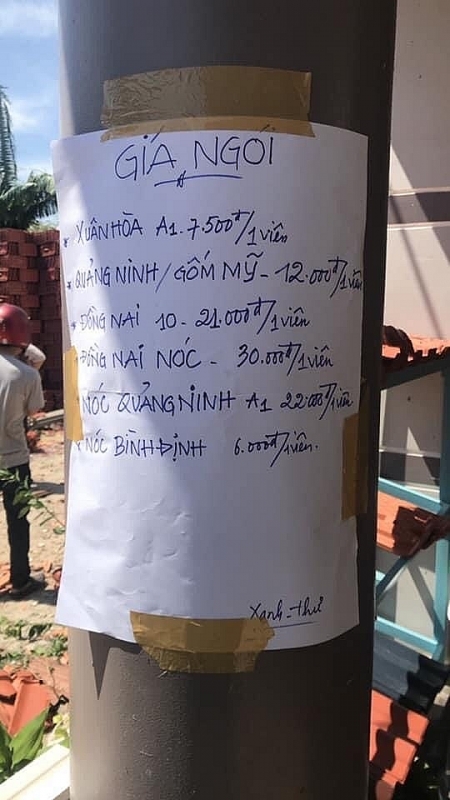 GIÁ NGÓI
* XUÂN HÒA A1. 7.500đ/1 viên
* QUẢNG NINH/GỐM MỸ - 12.000đ/1 viên
* ĐỒNG NAI 10 - 21.000đ/1 viên
* ĐỒNG NAI NÓC - 30.000đ/1 viên
* NÓC QUẢNG NINH A1 22.000đ/1 viên
* NÓC BÌNH ĐỊNH 6.000đ/1 viên.
Xanh - Thư